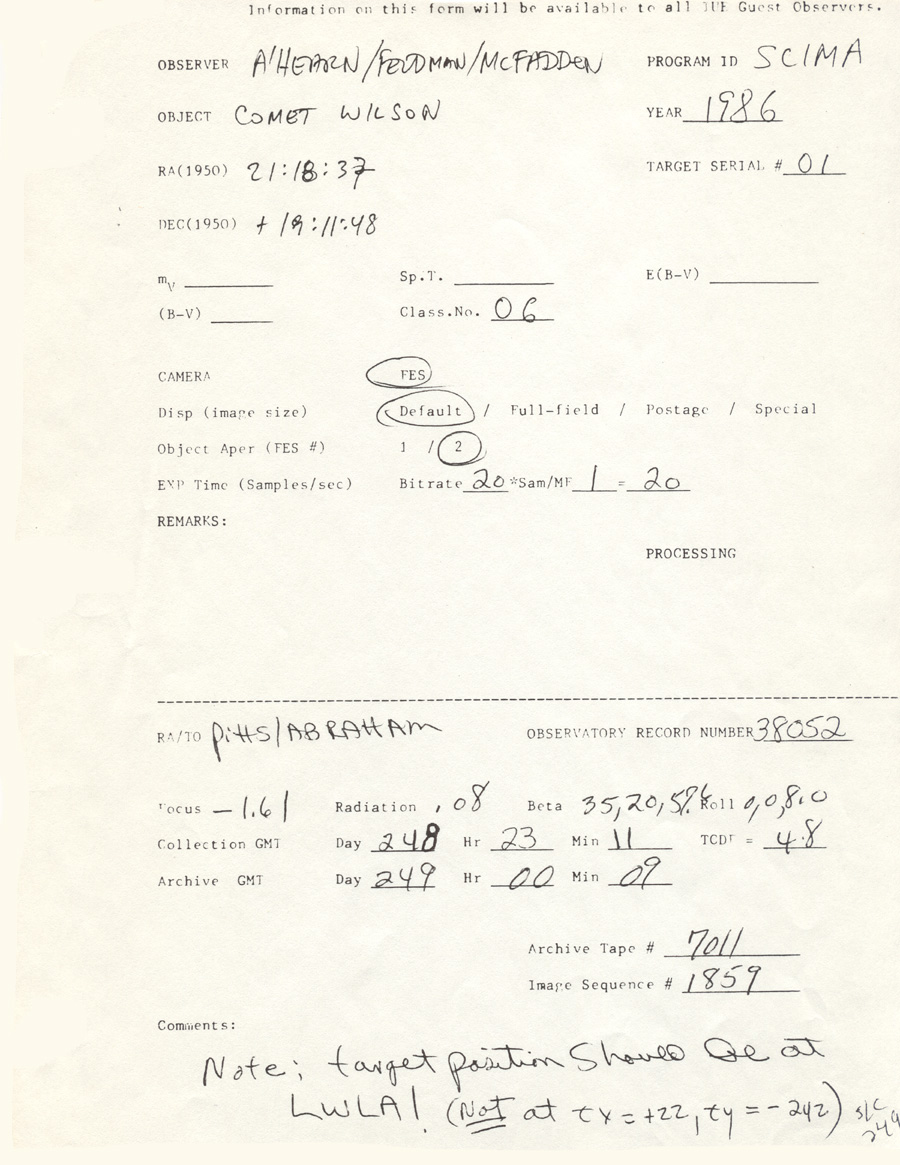 Information on this form will be available to all IUE Guest Observers.
OBSERVER A'HEARN/FELDMAN/McFADDEN PROGRAM ID SCIMA
OBJECT COMET WILSON YEAR 1986
RA(1950) 21:18:37 TARGET SERIAL # 01
DEC(1950) + 19:11:48
mV Sp.T. E(B-V)
(B-V) Class.No. 06
CAMERA FES
Disp (image size) Default / Full-field / Postage / Special
Object Aper (FES #) 1 / 2
EXP Time (Samples/sec) Bitrate 20 *Sam/MF 1 = 20
REMARKS:
PROCESSING
RA/TO PITTS/ABRAHAM OBSERVATORY RECORD NUMBER 38052
Focus -1.61 Radiation .08 Beta 35,20,57.6 Roll 0,0,8.0
Collection GMT Day 248 Hr 23 Min 11 TCDT = 4.8
Archive GMT Day 249 Hr 00 Min 09
Archive Tape # 7011
Image Sequence # 1859
Comments:
Note: target position should be at
LWLA! (Not at tx = +22, ty = -242)